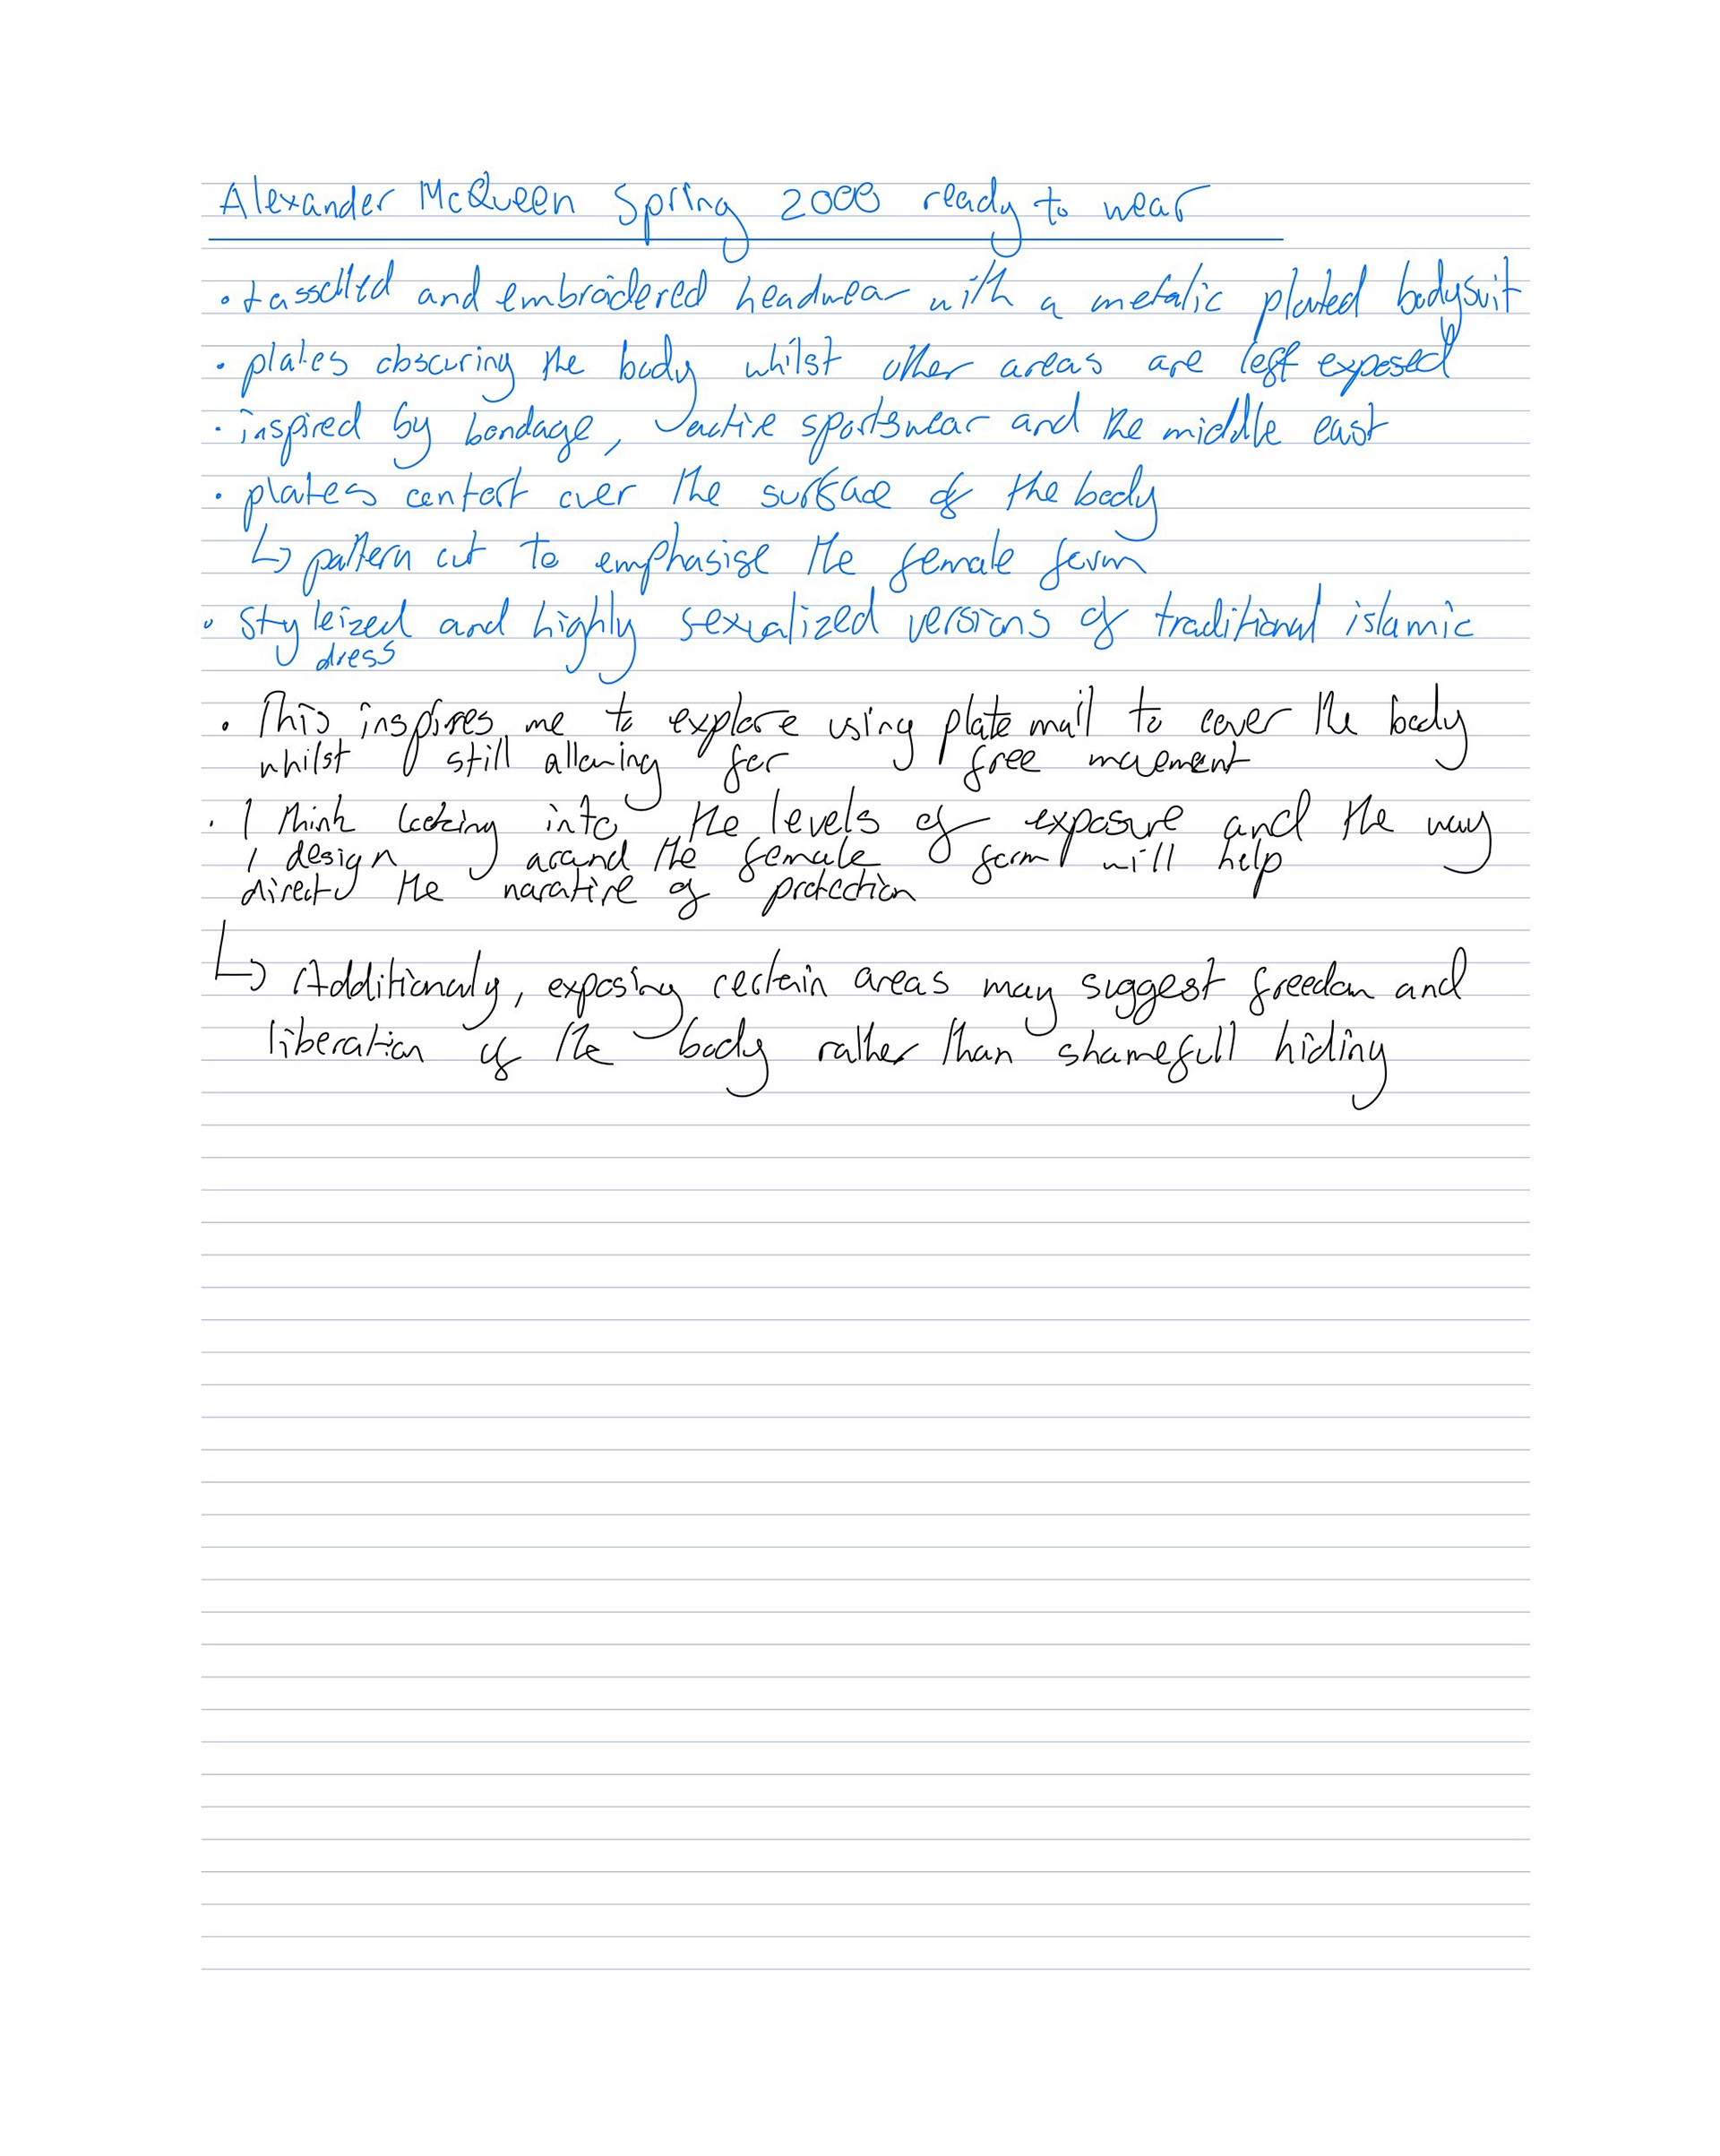 Alexander McQueen Spring 2000 ready to wear
• tasselled and embroidered headwear with a metalic plated bodysuit
• plates obscuring the body whilst other areas are left exposed
• inspired by bondage, active sportswear and the middle east
• plates contort over the surface of the body
↳ pattern cut to emphasise the female form
• styleized and highly sexualized versions of traditional islamic
dress
• This inspires me to explore using plate mail to cover the body
whilst still allowing for free movement
• I think looking into the levels of exposure and the way
I design around the female form will help
direct the narative of protection
↳ Additionaly, exposing certain areas may suggest freedom and
liberation of the body rather than shamefull hiding